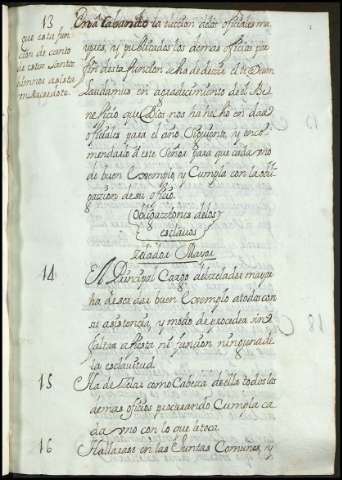 13
que esta fun
cion de canto
de estos santos
himnos asista
En acabando la eleccion delos oficiales ma
yores, y publicados los demas oficios por
fin desta funcion se ha de decir el te Deum
Laudamus en agradecimiento de el Be
neficio que Dios nos ha hecho en dar
oficiales para el año siguiente, y enco
mendarlo a este Señor para que cada uno
de buen exemplo, y Cumpla con la obli
gacion de su oficio.
Obligaciones delos
esclavos
Zelador Mayor
14 El Principal Cargo del zelador mayor
ha de ser dar buen exemplo a todos con
su asistencia, y modo de proceder sin
faltar a fiesta ni funcion ninguna de
la esclavitud.
15 Ha de Zelar como Cabeza de ella todos los
demas oficios procurando Cumpla ca
da uno con lo que le toca.
16 Hallarase en las Juntas Comunes, y